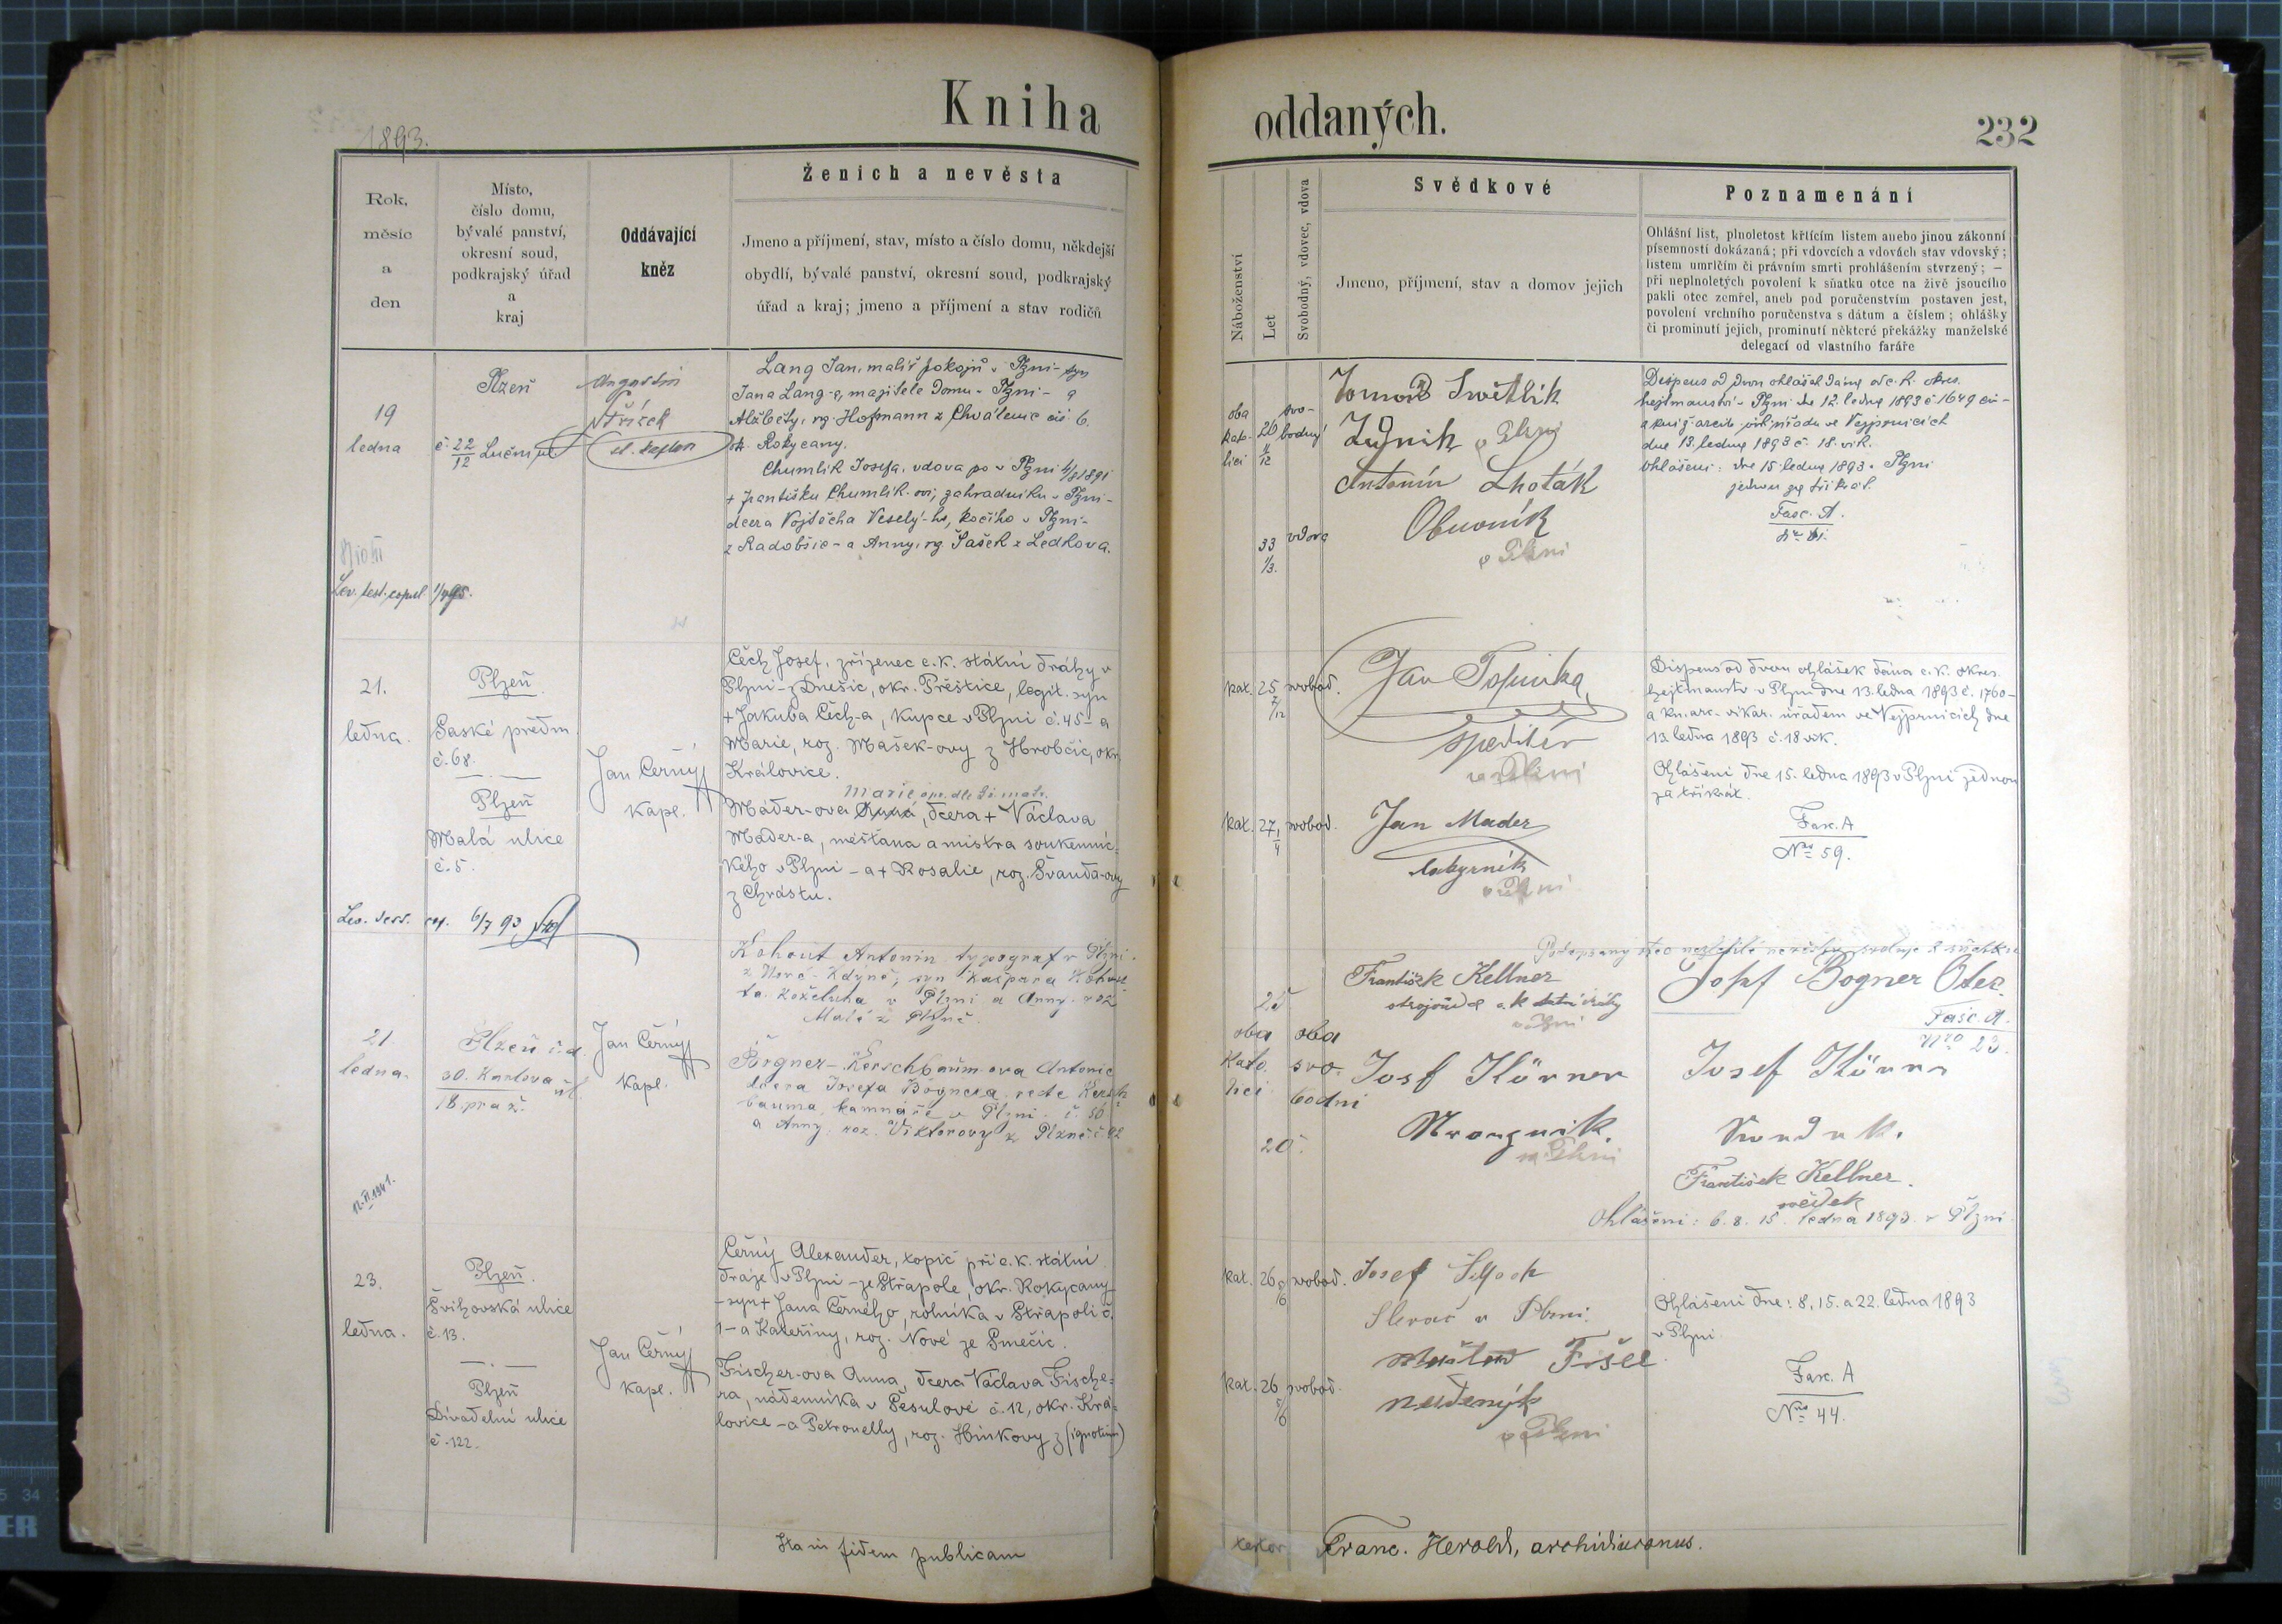 Kniha
oddaných.
1893.
232
Rok,
měsíc
a
den
Místo,
číslo domu,
bývalé panství,
okresní soud,
podkrajský úřad
a
kraj
Oddávající
kněz
Ženich a nevěsta
Jmeno a příjmení, stav, místo a číslo domu, někdejší
obydlí, bývalé panství, okresní soud, podkrajský
úřad a kraj; jmeno a příjmení a stav rodičů
Náboženství
Let
Svobodný, vdovec, vdova
Svědkové
Jmeno, příjmení, stav a domov jejich
Poznamenání
Ohlášní list, plnoletost křlícím listem anebo jinou zákonní
písemností dokázaná; při vdovcích a vdovách stav vdovský;
listem umrlčím či právním smrti prohlášením stvrzený; —
při neplnoletých povolení k sňatku otce na živě jsoucího
pakli otec zemřel, aneb pod poručenstvím postaven jest,
povolení vrchního poručenstva s dátum a číslem; ohlášky
či prominutí jejich, prominutí některé překážky manželské
delegací od vlastního faráře
19
ledna
Plzeň
č. 22/12 Luční ul
Augustin
Lang Jan, malíř pokojů v Plzni - syn
Jana Lang-a, majitele domu v Plzni - a
Alžběty, rz. Hofmann z Chválenic čís 6.
ok. Rokycany.
Chumlík Josefa, vdova po v Plzni 4/8 1891
+ Františku Chumlík-ovi, zahradníku v Plzni -
dcera Vojtěcha Veselý-ho, kočího v Plzni -
z Radobčic - a Anny, rz. Šašek z Ledkova.
oba
kato-
lici
26
1/12
svo-
bodný
33
1/3.
vdova
Světlik
v Plzni
Antonín Lhoták
Obuvník
v Plzni
Dispens od dvou ohlášek dána od c. k. okres.
hejtmanství v Plzni dne 12. ledna 1893 č 1649 civ -
dne 13. ledna 1893 č. 18. vik.
Ohlášeni: dne 15. ledna 1893 v Plzni
jednou za třikrát.
Fasc. A.
21.
ledna.
Plzeň
Saské předm.
č. 68.
Plzeň
Malá ulice
č. 5.
Jan Černý
kapl.
Čech Josef, zřízenec c. k. státní dráhy v
Plzni - z Dnešic, okr. Přeštice, legit. syn
+ Jakuba Čech-a, kupce v Plzni č. 45 - a
Marie, roz. Mašek-ovy z Hrobčic, okr.
Kralovice.
Marie opr. dle
Mader-ova Anna, dcera + Václava
Mader-a, měšťana a mistra soukennic-
kého v Plzni - a + Rosalie, roz. Švanda-ovy
z Chrástu.
kat. 25 7/12 svobod.
kat. 27 1/4 svobod.
Jan Topinka
špeditér
v Plzni
Jan Mader
v Plzni
Dispens od dvou ohlášek dána c. k. okres.
hejtmanstv. v Plzni dne 13. ledna 1893 č. 1760 -
a kn. arc. - vikar. úřadem ve Vejprnicích dne
13. ledna 1893 č. 18 vik.
Ohlášeni dne 15. ledna 1893 v Plzni jednou
za třikrát.
Fasc. A
Nro 59.
6/7 93
21.
ledna.
Plzeň č. d.
30. Karlova ul.
18. praž.
Jan Černý
kapl.
Kohout Antonin typograf v Plzni.
z Nové Kdýně, syn Kašpara Kohou-
ta koželuha v Plzni a Anny roz
Malé z Plzně.
Bögner - Kerschbaum-ova Antonie
dcera Josefa Bögnera recte Kersch-
bauma, kamnáře v Plzni č. 50
a Anny, roz. Viktorovy z Plzně č. 92
12. II 1941.
oba
kato
lici
oba
svo.
bodni
František Kellner
v Plzni
Josf Körner
v Plzni
Podepsaný otec nezletilé nevěsty svoluje k sňatku
Josef Bogner Otec.
Fasc. A.
Nro 23.
Josef Körner
František Kellner.
svědek
Ohlášeni: 6. 8. 15. ledna 1893 v Plzni
23.
ledna.
Plzeň.
Švihovská ulice
č. 13.
Plzeň
Divadelní ulice
č. 122.
Jan Černý
kapl.
Černý Alexander, topič při c. k. státní
dráze v Plzni - ze Střapole, okr. Rokycany -
- syn + Jana Černého, rolníka v Střapoli č.
1 - a Kateřiny, roz. Nové ze Smečic.
Fischer-ova Anna, dcera Václava Fische-
ra, nádenníka v Šesulové č. 12, okr. Kra-
lovice - a Petronelly, roz. Hinkovy z (ignotum)
kat. 26 svobod.
kat. 26 svobod.
Josef
v Plzni.
Fišer
v Plzni
Ohlášeni dne: 8, 15. a 22. ledna 1893
v Plzni.
Fasc. A
Nro 44.
Ita in fidem publicam
testor. Franc. Herold, archidiaconus.